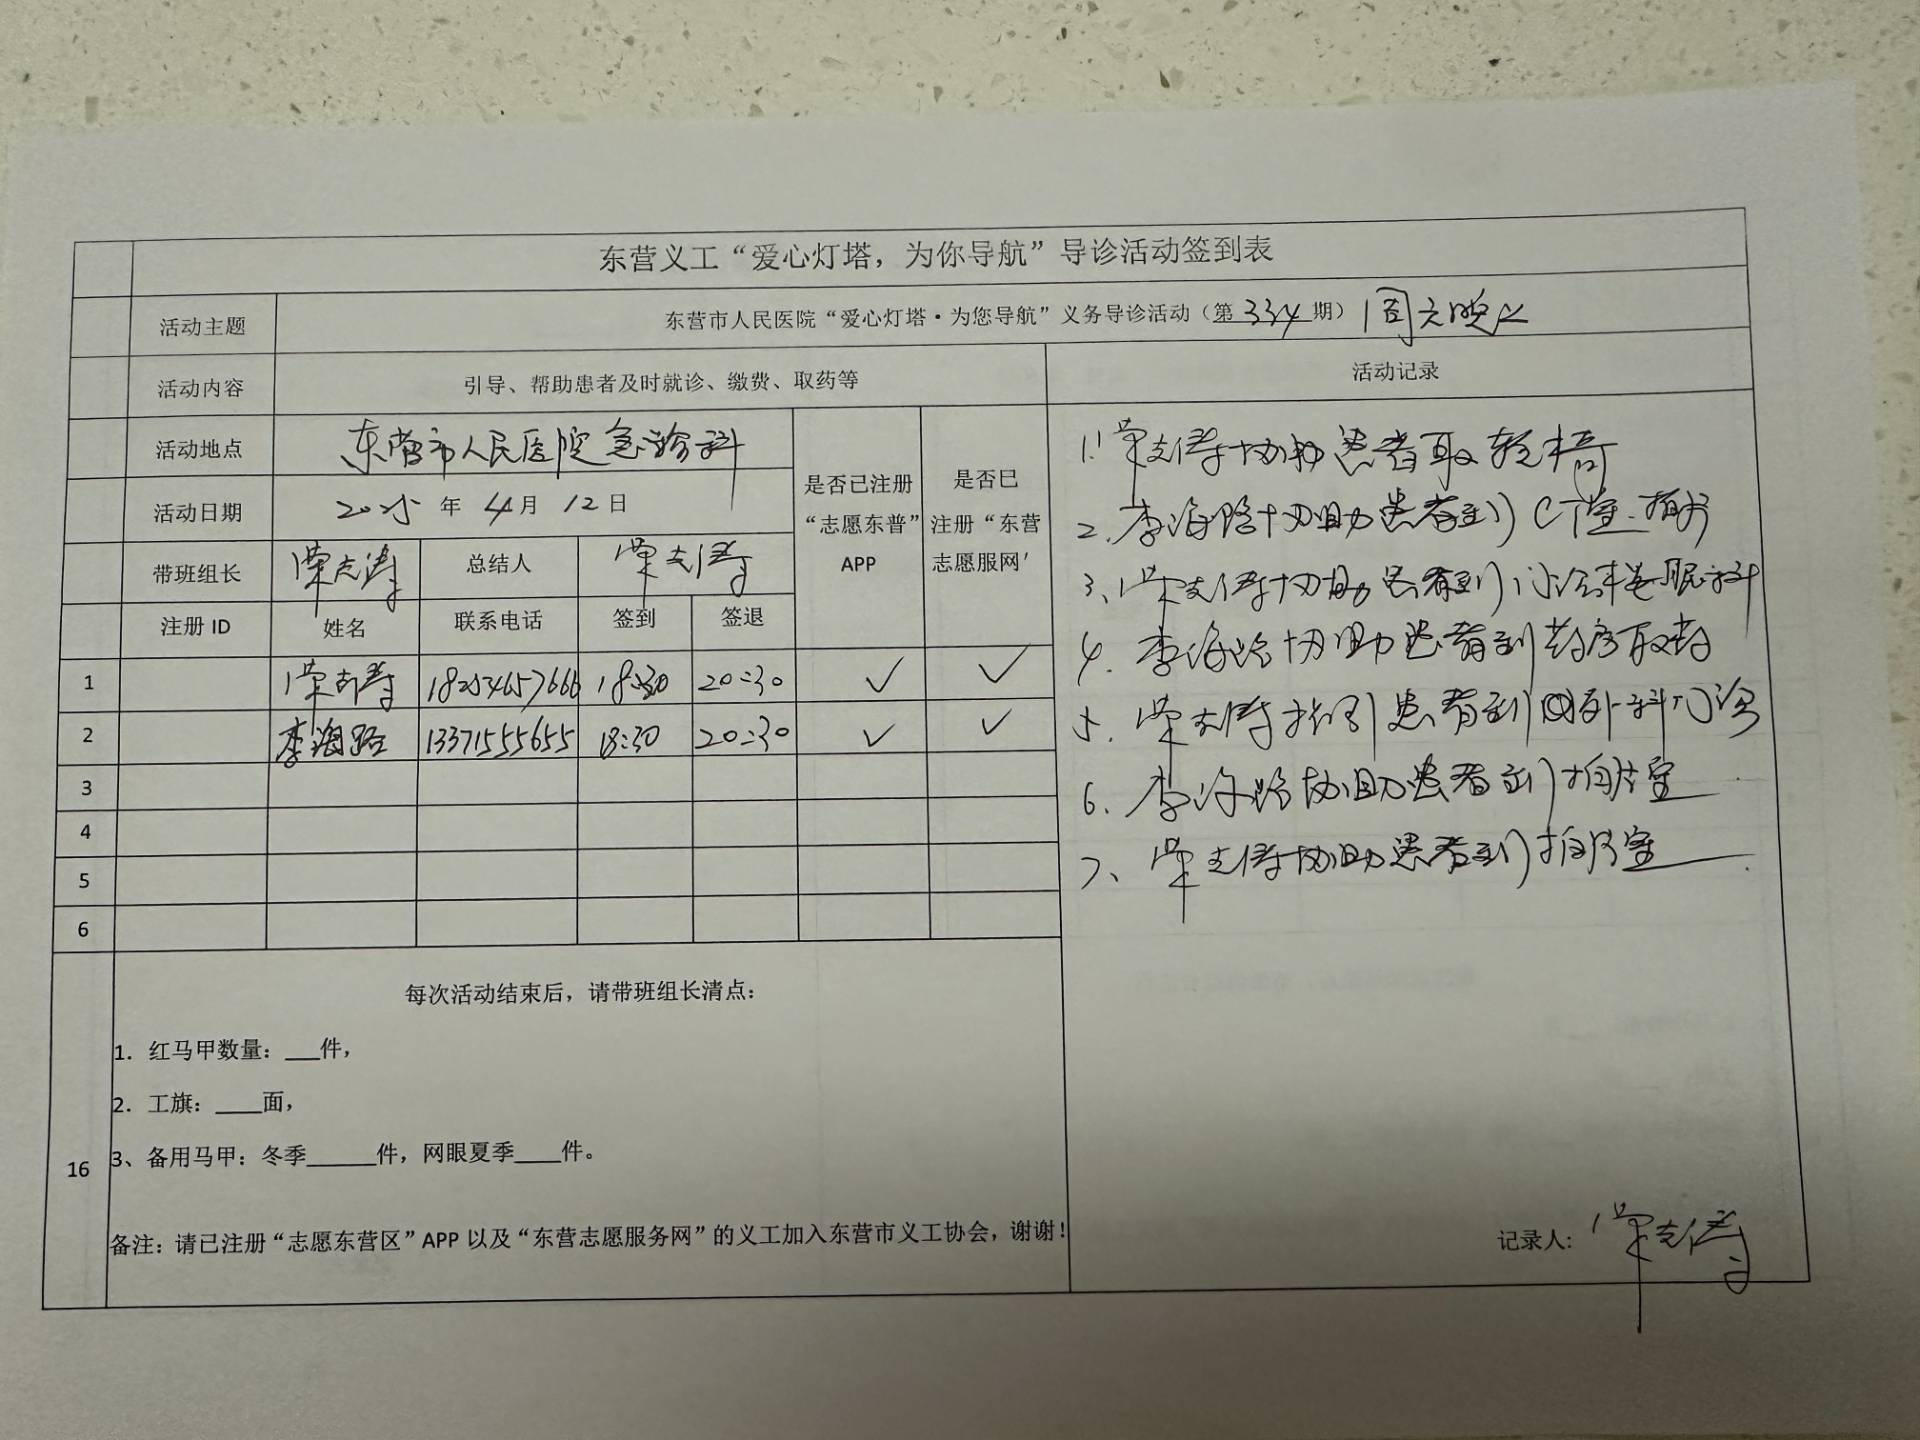 东营义工“爱心灯塔，为你导航”导诊活动签到表
活动主题 东营市人民医院“爱心灯塔·为您导航”义务导诊活动（第334期）周六晚上
活动内容 引导、帮助患者及时就诊、缴费、取药等 活动记录
活动地点 东营市人民医院急诊科
是否已注册“志愿东普”APP
是否巳注册“东营志愿服网'
活动日期 2025年4月12日
带班组长 荣志涛 总结人 荣志涛
注册ID 姓名 联系电话 签到 签退
1 荣志涛 18254657666 18:30 20:30 ✓ ✓
2 李海路 13371555655 18:30 20:30 ✓ ✓
3
4
5
6
1. 荣志涛协助患者取轮椅
2. 李海路协助患者到CT室拍片
3、荣志涛协助患者到门诊眼科
4. 李海路协助患者到药房取药
5. 荣志涛指引患者到外科门诊
6. 李海路协助患者到拍片室
7、荣志涛协助患者到拍片室
16
每次活动结束后，请带班组长清点：
1. 红马甲数量：___件，
2. 工旗：____面，
3、备用马甲：冬季______件，网眼夏季____件。
备注：请已注册“志愿东营区”APP以及“东营志愿服务网”的义工加入东营市义工协会，谢谢！
记录人: 荣志涛